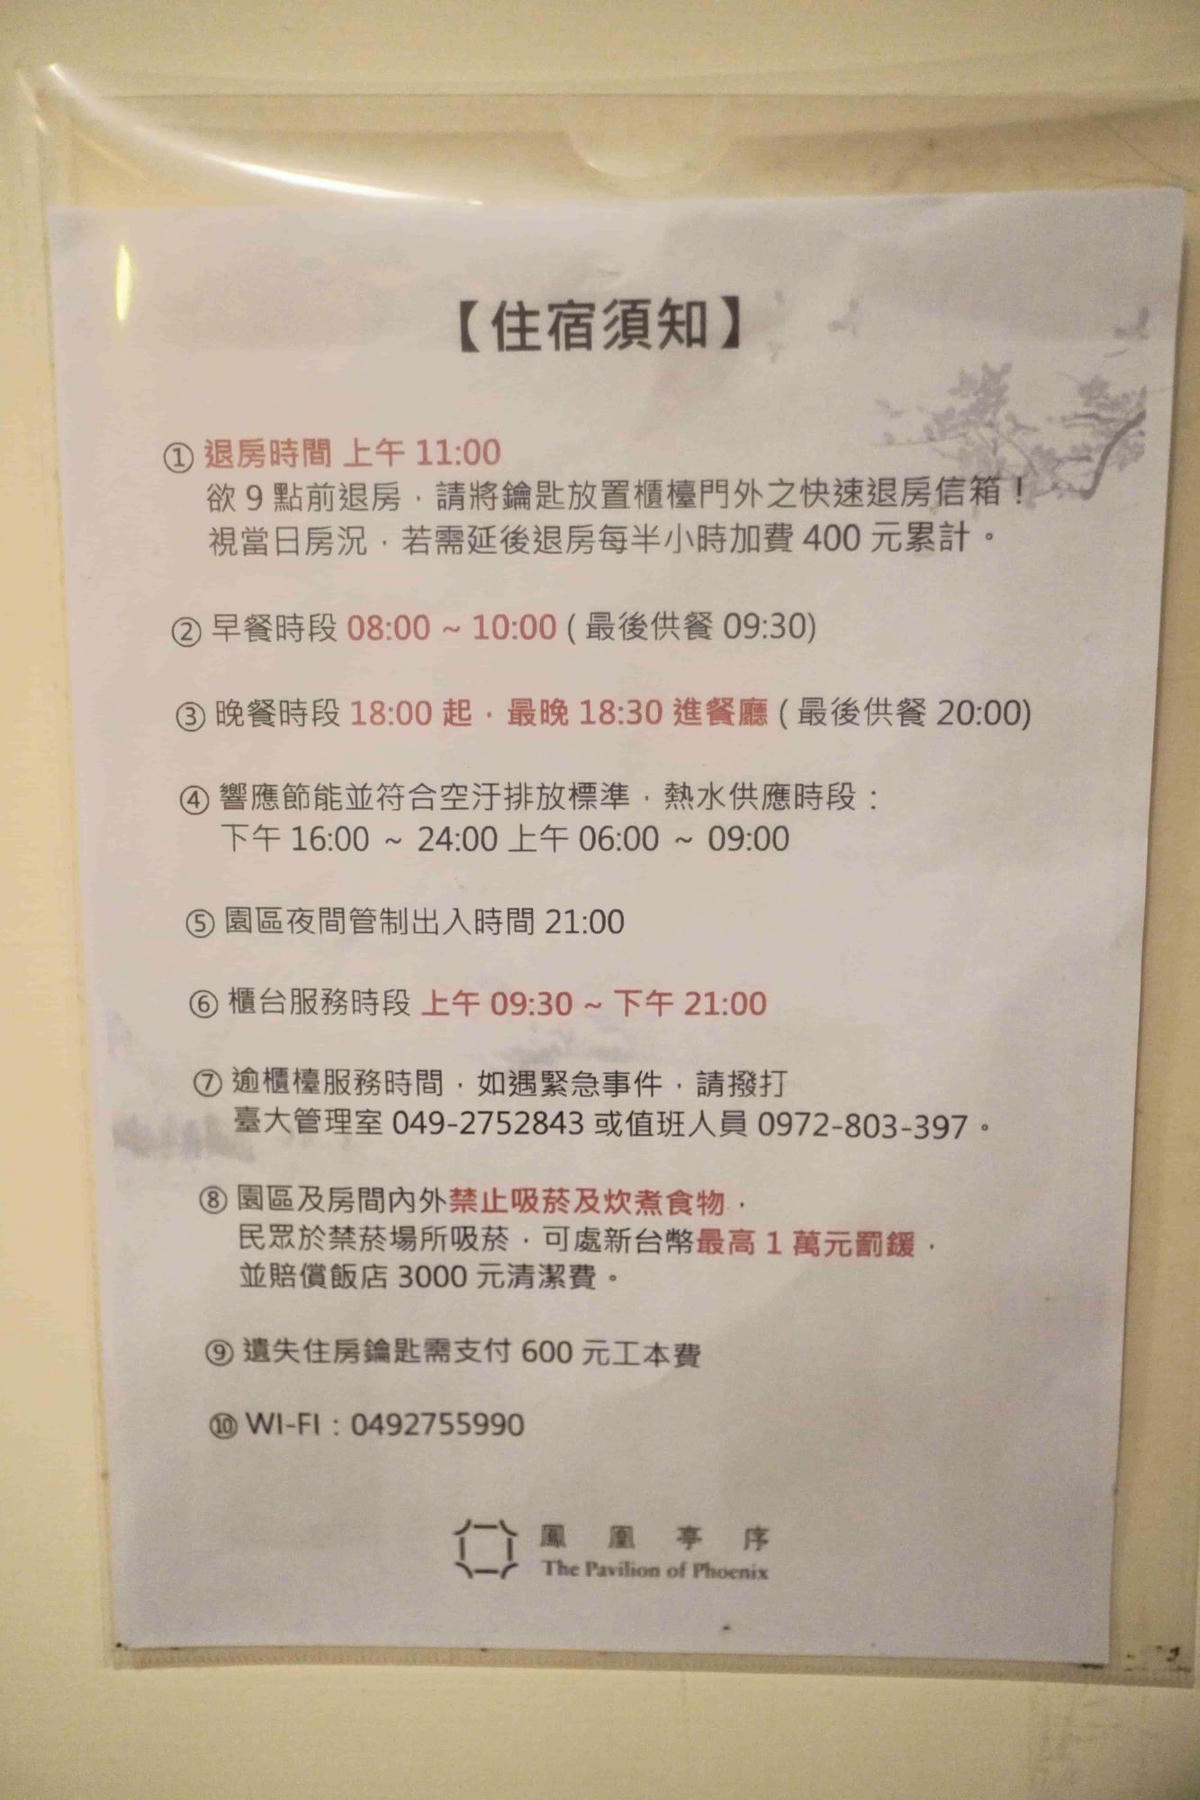 【住宿須知】
① 退房時間 上午 11:00
欲 9 點前退房，請將鑰匙放置櫃檯門外之快速退房信箱！
視當日房況，若需延後退房每半小時加費 400 元累計。
② 早餐時段 08:00 ~ 10:00 ( 最後供餐 09:30)
③ 晚餐時段 18:00 起，最晚 18:30 進餐廳 ( 最後供餐 20:00)
④ 響應節能並符合空汙排放標準，熱水供應時段：
下午 16:00 ~ 24:00 上午 06:00 ~ 09:00
⑤ 園區夜間管制出入時間 21:00
⑥ 櫃台服務時段 上午 09:30 ~ 下午 21:00
⑦ 逾櫃檯服務時間，如遇緊急事件，請撥打
臺大管理室 049-2752843 或值班人員 0972-803-397。
⑧ 園區及房間內外禁止吸菸及炊煮食物，
民眾於禁菸場所吸菸，可處新台幣最高 1 萬元罰鍰，
並賠償飯店 3000 元清潔費。
⑨ 遺失住房鑰匙需支付 600 元工本費
⑩ WI-FI：0492755990
鳳凰亭序
The Pavilion of Phoenix